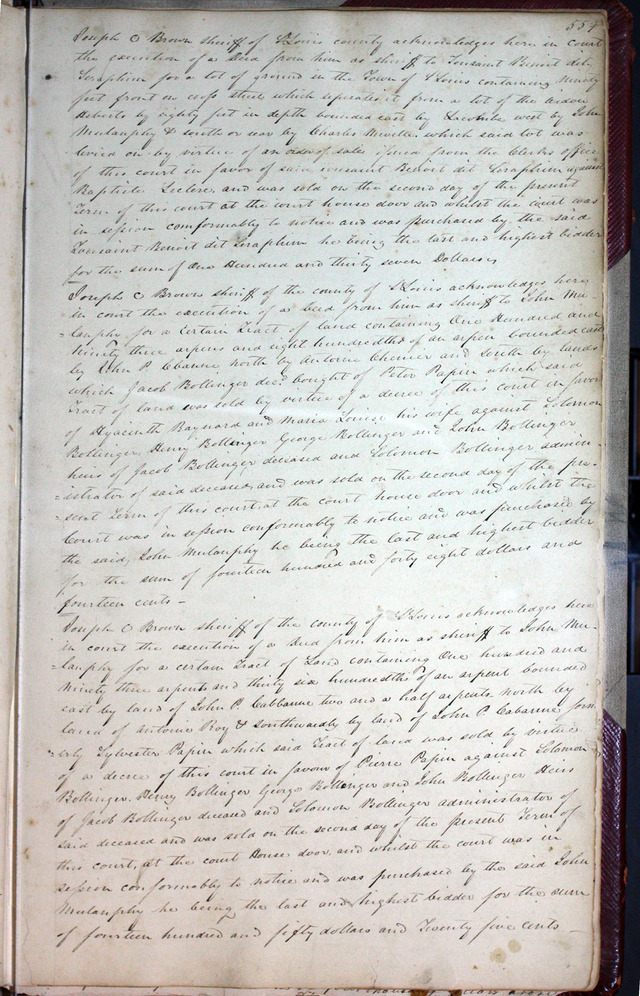 554
Joseph C Brown sheriff of St Louis county acknowledges here in court
the execution of a deed from him as sheriff to Tousaint Benoit dit
Seraphim for a lot of ground in the Town of St Louis containing Ninety
feet front on cross street which seperates it from a lot of the widow
Heberts by eighty feet in depth bounded east by Lacombe west by John
Mulanphy & south or rear by Charles which said lot was
levied on by virtue of an order of sale issued from the Clerks office
of this court in favor of said Tousaint Benoit dit Seraphim against
Baptiste Leclerc, and was sold on the second day of the present
Term of this court at the court house door and whilst the court was
in session comformably to notice and was purchased by the said
Toussaint Benoit dit Seraphim he being the last and highest bidder
for the sum of One Hundred and thirty seven Dollars
Joseph C Brown sheriff of the county of St Louis acknowledges here
in court the execution of a deed from him as sheriff to John Mu-
=lanphy for a certain Tract of land containing One Hundred and
Ninety three arpens and eight hundredths of an arpen bounded east
by John P. Cbanne north by Antoine Chenier and South by lands
which Jacob Bollinger decd bought of Peter Papin which said
Tract of land was sold by virtue of a decree of this court in favor
of Hyacinth Raynard and Maria Louise his wife against Solomon
Bollinger Henry Bollinger George Bollinger and John Bollinger
heirs of Jacob Bollinger deceased and Solomon Bollinger admin-
=istrator of said deceased, and was sold on the second day of the pre-
=sent Term of this court, at the court house door and whilst the
Court was in session conformably to notice and was purchased by
the said John Mulanphy he being the last and highest bidder
for the sum of fourteen hundred and forty eight dollars and
fourteen cents –
Joseph C Brown sheriff of the county of St Louis acknowledges here
in court the execution of a deed from him as sheriff to John Mu-
=lanphy for a certain Tract of Land containing One hundred and
Ninety three arpents and thirty six hundredths of an arpent bounded
east by land of John P. Cabbanne two and a half arpents north by
land of Antoine Roy & Southwardly by land of John P. Cabanne form
=erly Sylvester Papin which said Tract of land was sold by virtue
of a decree of this court in favour of Pierre Papin against Solomon
Bollinger, Henry Bollinger George Bollinger and John Bollinger Heirs
of Jacob Bollinger deceased and Solomon Bollinger administrator of
said deceased and was sold on the second day of the present Term of
this court, at the court House door, and whilst the court was in
session conformably to notice and was purchased by the said John
Mulanphy he being the last and highest bidder for the sum
of fourteen hundred and fifty dollars and Twenty five cents –